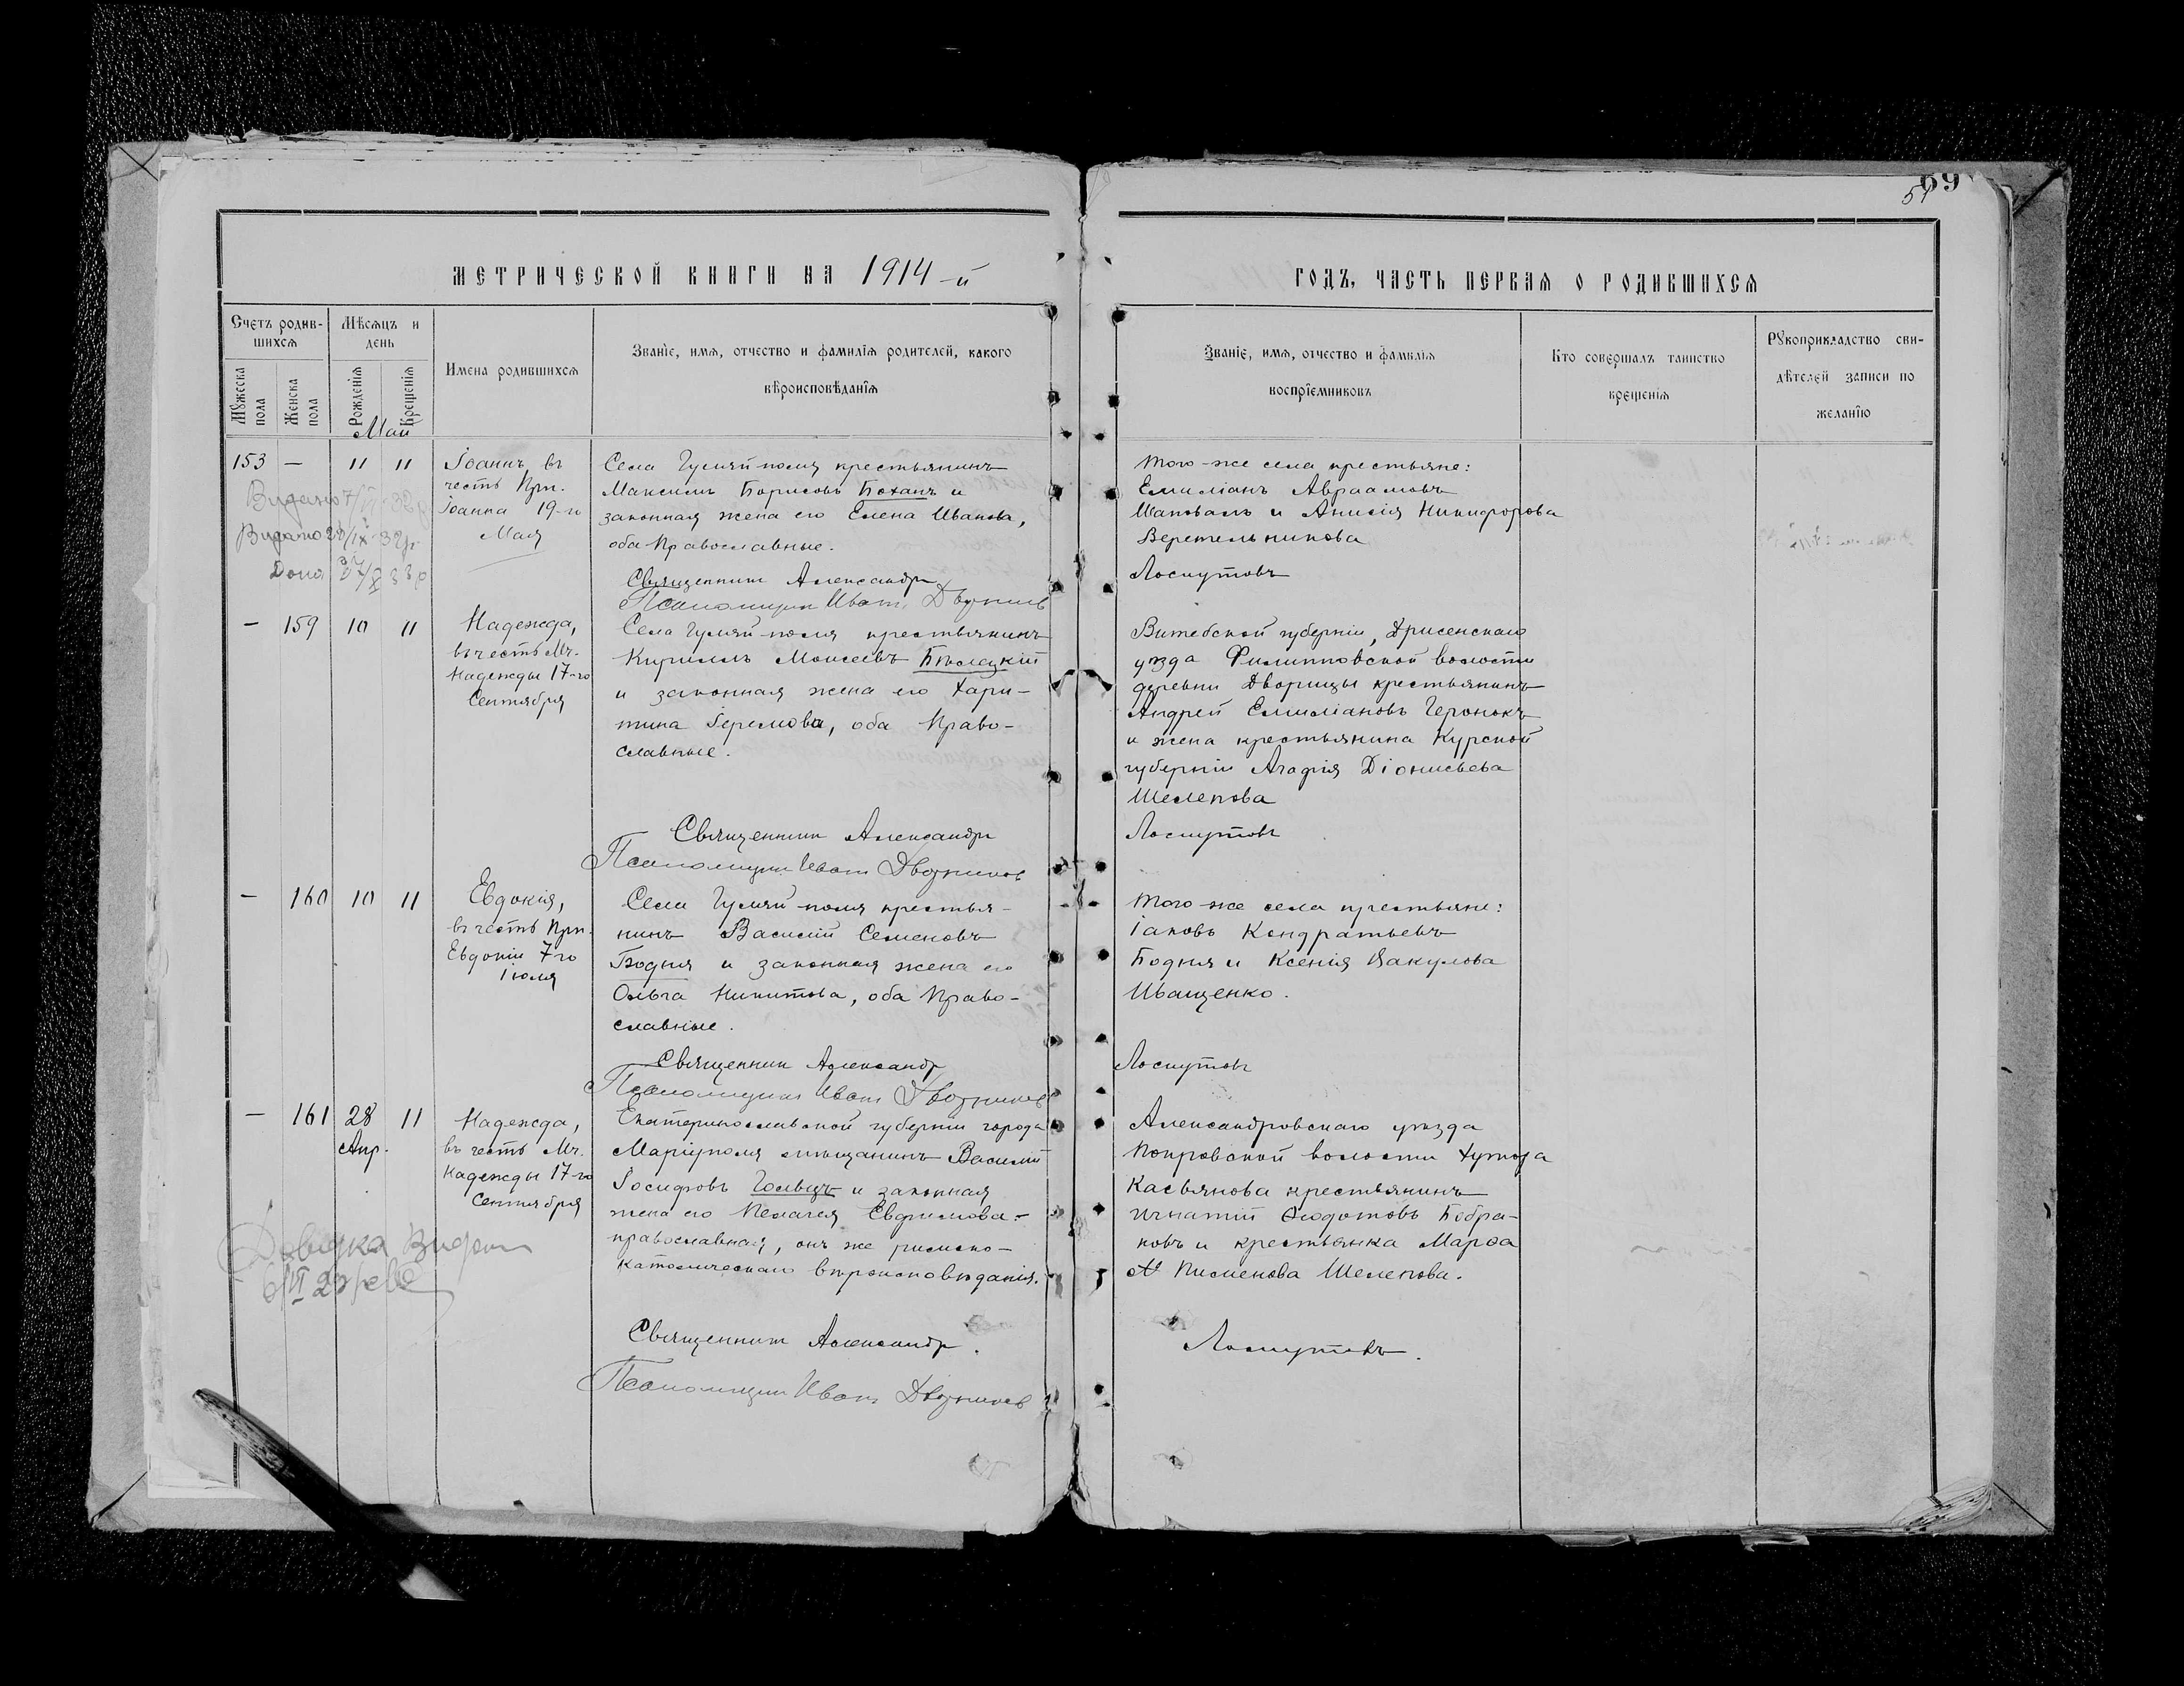 69
51
МЕТРИЧЕСКОЙ КНИГИ НА 1914-й
ГОДЪ, ЧАСТЬ ПЕРВАЯ О РОДИВШИХСЯ
Счетъ родив-
шихся
Мѣсяцъ и
день
Мужеска
пола
Женска
пола
Рожденія
Крещенія
Имена родившихся
Званіе, имя, отчество и фамилія родителей, какого
вѣроисповѣданія
Званіе, имя, отчество и фамилія
воспріемниковъ
Кто совершалъ таинство
крещенія
Рукоприкладство сви-
дѣтелей записи по
желанію
Май
153 — 11 11
Іоаннъ, въ
честь Прп.
Іоанна 19-го
Мая
Села Гуляй-поля крестьянинъ
Максимъ Борисовъ Боханъ и
законная жена его Елена Иванова,
оба Православные.
Священникъ Александръ
Псаломщикъ Иванъ Дворников
Того-же села крестьяне:
Емиліанъ Авраамовъ
Шаповалъ и Анисія Никифорова
Веретельникова
Лоскутовъ
Видано
Видано 28/IX 32р
— 159 10 11
Надежда,
въ честь Мч.
Надежды 17-го
Сентября
Села Гуляй-поля крестьянинъ
Кириллъ Моисеевъ Бѣлецкій
и законная жена его Хари-
тина Іеремова, оба Право-
славные.
Священникъ Александръ
Псаломщикъ Иванъ Дворников
Витебской губерніи, Дрисенскаго
уѣзда Филипповской волости
деревни Дворицы крестьянинъ
Андрей Емиліановъ Геронокъ
и жена крестьянина Курской
губерніи Агафія Діонисьева
Шелепова
Лоскутовъ
— 160 10 11
Евдокія,
въ честь Прп.
Евдокіи 7-го
Іюля
Села Гуляй-поля крестья-
нинъ Василій Семеновъ
Бодня и законная жена его
Ольга Никитова, оба Право-
славные.
Священникъ Александр
Псаломщикъ Иванъ Дворников
Того-же села крестьяне:
Іаковъ Кондратьевъ
Бодня и Ксенія Вакулова
Иващенко.
Лоскутовъ
— 161 28 11
Апр.
Надежда,
въ честь Мч.
Надежды 17-го
Сентября
Екатеринославской губерніи города
Маріуполя мѣщанинъ Василій
Іосифовъ Голвцъ и законная
жена его Пелагея Евфимова -
православная, онъ же римско-
католическаго вѣроисповѣданія.
Священникъ Александр.
Псаломщикъ Иванъ Дворников
Александровскаго уѣзда
Покровской волости хутора
Касьянова крестьянинъ
Игнатій Ѳеодотовъ Бобра-
ковъ и крестьянка Марѳа
Пименова Шелепова.
Лоскутовъ.
Довідка Видан